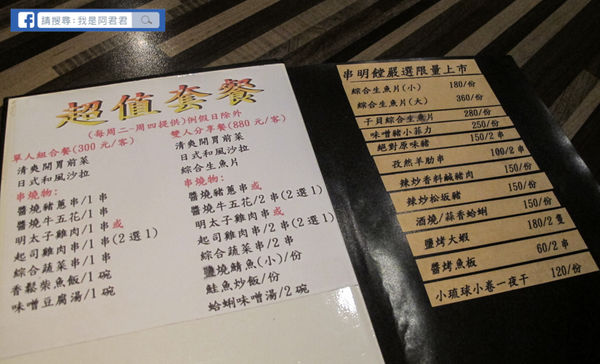 請搜尋:我是阿君君
超值套餐
(每周二-周四提供)例假日除外
單人組合餐(300元/客)
清爽開胃前菜
日式和風沙拉
串燒物:
醬燒豬蔥串/1串
醬燒牛五花/1串
明太子雞肉/1串或
起司雞肉串/1串(2選1)
綜合蔬菜串/1串
香鬆柴魚飯/1碗
味噌豆腐湯/1碗
雙人分享餐(880元/客)
清爽開胃前菜
日式和風沙拉
綜合生魚片
串燒物:
醬燒豬蔥串或
醬燒牛五花/2串(2選1)
明太子雞肉串或
起司雞肉串/2串(2選1)
綜合蔬菜串/2串
鹽燒鯖魚(小)/份
鮭魚炒飯/份
蛤蜊味噌湯/2碗
串明饄嚴選限量上市
綜合生魚片(小) 180/份
綜合生魚片(大) 360/份
干貝綜合生魚片 280/份
味噌豬小菲力 250/份
絕對原味豬 150/2串
孜然羊肋串 100/2串
辣炒香料鹹豬肉 150/份
辣炒松坂豬 150/份
酒燒/蒜香蛤蜊 150/份
鹽烤大蝦 180/2隻
醬烤魚板 60/2串
小琉球小卷一夜干 120/份